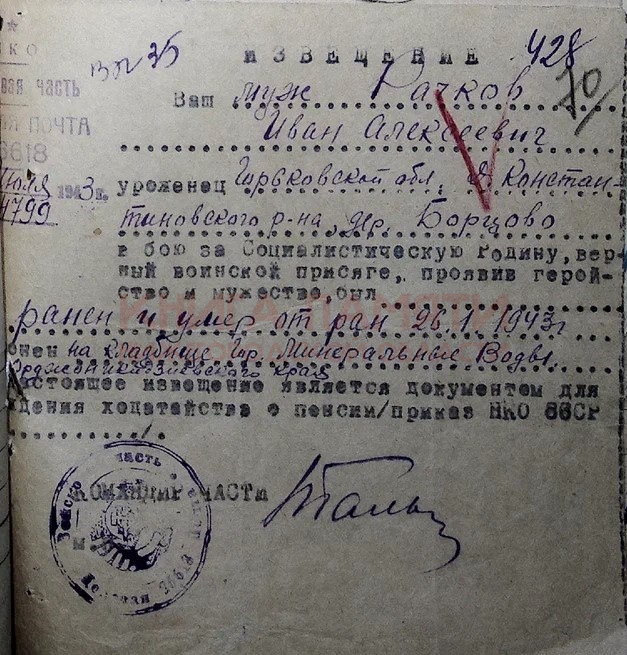 НКО
вая часть
ая ПОЧТА
6618
июля 1943 г.
4799
вог 35
428
10
ИЗВЕЩЕНИЕ
Ваш муж Рачков
Иван Алексеевич
уроженец Горьковской обл. Д. Констан-
тиновского р-на, дер. Борцово
в бою за Социалистическую Родину, вер-
ный воинской присяге, проявив герой-
ство и мужество, был
ранен и умер от ран 26.1.1943г
онен на кладбище гор. Минеральные Воды
Орджоникидзевского края
астоящее извещение является документом для
ждения ходатайства о пенсии/приказ НКО СССР
КОМАНДИР ЧАСТИ
м.п.
Войско часть
Полевая
КНИГА ПАМЯТИ